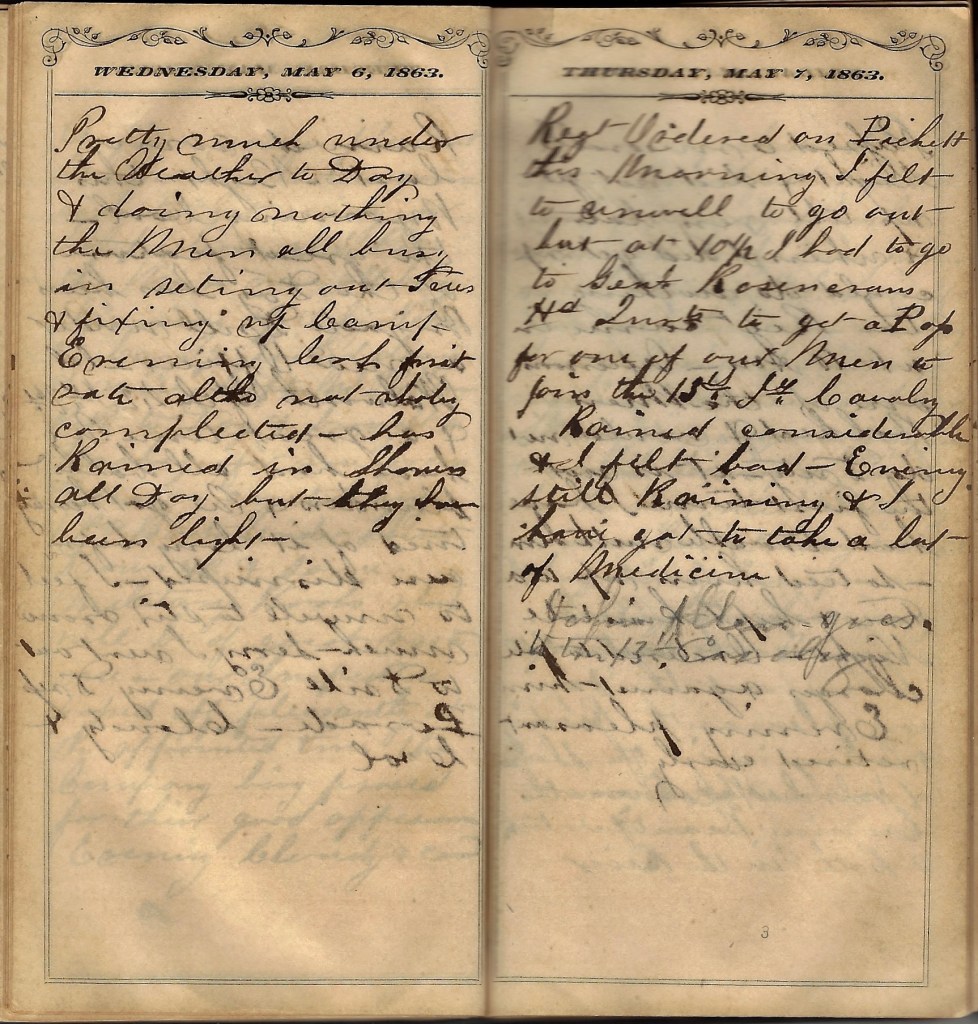 WEDNESDAY, MAY 6, 1863.
Pretty much under
the Weather to Day
& doing nothing
the Men all busy
in seting out Trees
& fixing up Camp-
Evening
not
complected - has
Rained in Showers
all Day but they have
been light-
THURSDAY, MAY 7, 1863.
Regt Ordered on Pickett
this Morning I felt
to unwell to go out
but at 10 I had to go
to Genl Rosencrans
Hd to get a
for one of our Men to
join the 15th Cavalry
Rained considerable
& I felt bad - Evening
still Raining & I
have got to take a lot
of Medicine
3